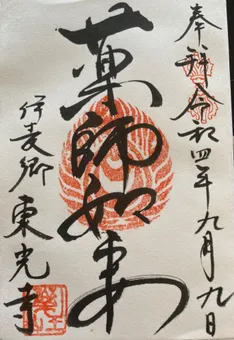 奉拝 令和四年九月九日
薬師如来
伊麦郷 東光寺